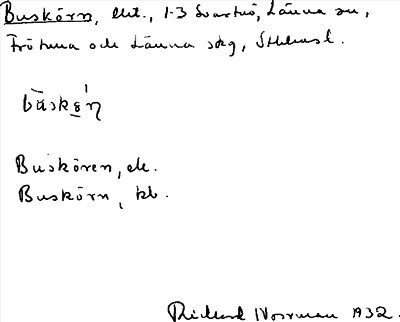 Buskörn, ägt., 1-3 Svartnö, Länna sn,
Frötuna och Länna skg, Sthlmsl.
bɷskǿn
Buskören, ek.
Buskörn, kb.
Rickard Norrman 1932.